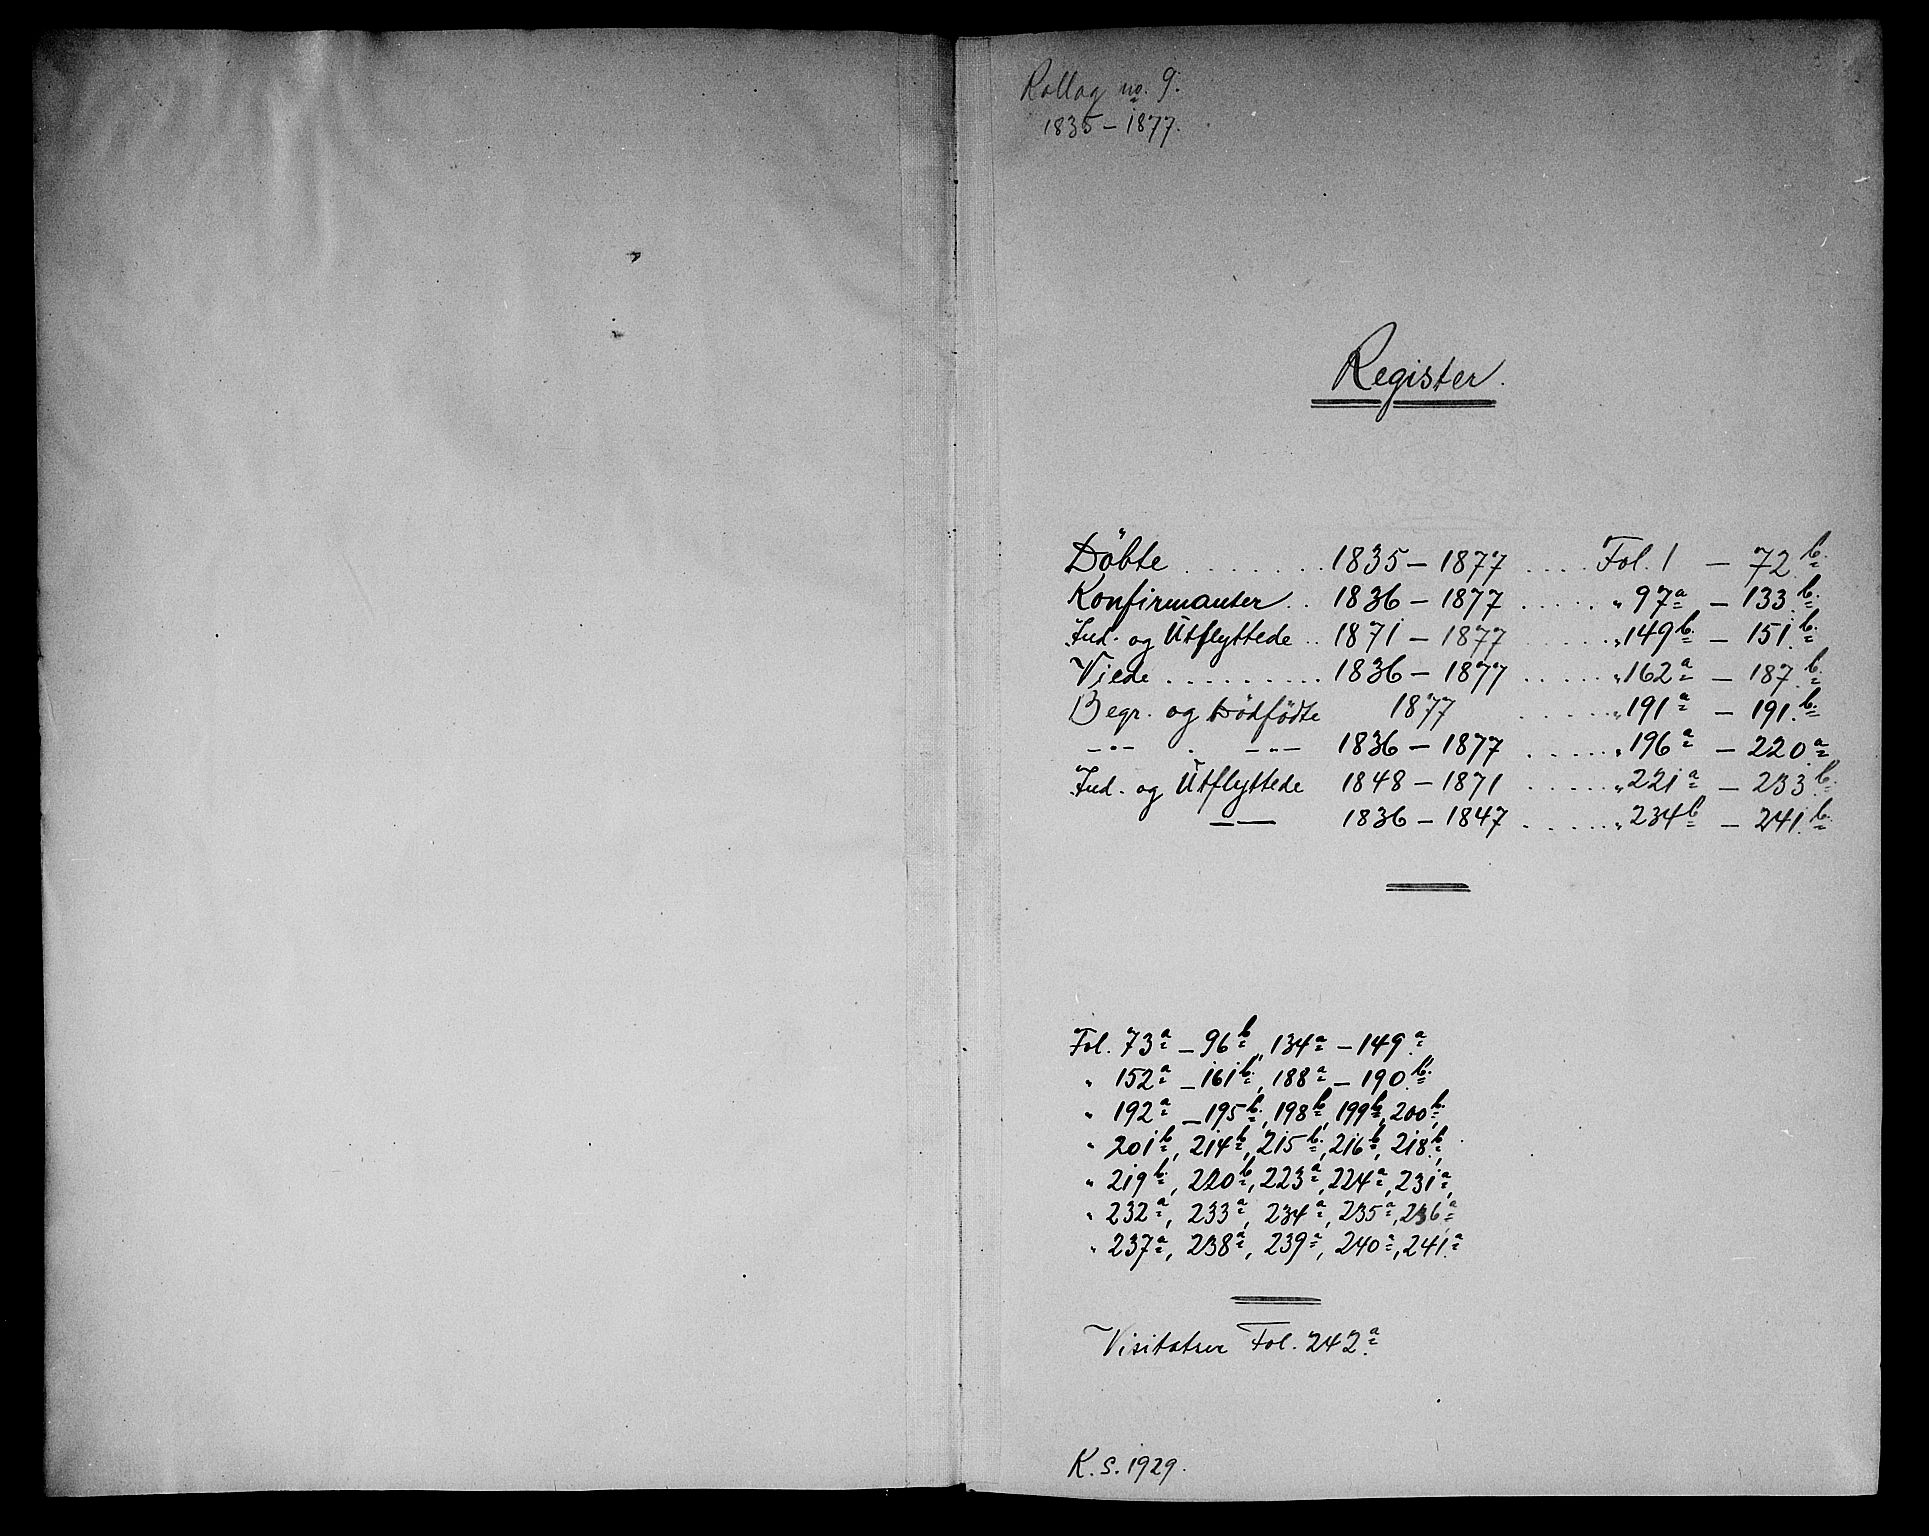 Rollag no. 9.
1835 – 1877.
Register.
Döbte . . . . . . . 1835 – 1877 . . . . Fol. 1 – 72 b.
Konfirmanter . . 1836 – 1877 . . . . . " 97 a – 133 b.
Ind. og Utflyttede . . 1871 – 1877 . . . . . " 149 b. – 151 b.
Viede . . . . . . . . . 1836 – 1877 . . . . . " 162 a – 187 b.
Begr. og Dödfödte 1877 . . . . . " 191 a – 191 b.
–"– " –"– 1836 – 1877 . . . . . " 196 a – 220 a
Ind. og Utflyttede 1848 – 1871 . . . . . " 221 a – 233 b.
–"– 1836 – 1847 . . . . . " 234 b – 241 b.
Fol. 73 a – 96 b, 134 a – 149 a
" 152 a – 161 b, 188 a – 190 b.
" 192 a – 195 b, 198 b, 199 b, 200 b,
" 201 b, 214 b, 215 b, 216 b, 218 b,
" 219 b, 220 b, 223 a, 224 a, 231 a,
" 232 a, 233 a, 234 a, 235 a, 236 a,
" 237 a, 238 a, 239 a, 240 a, 241 a
Visitatser Fol. 242 a
K. S. 1929.